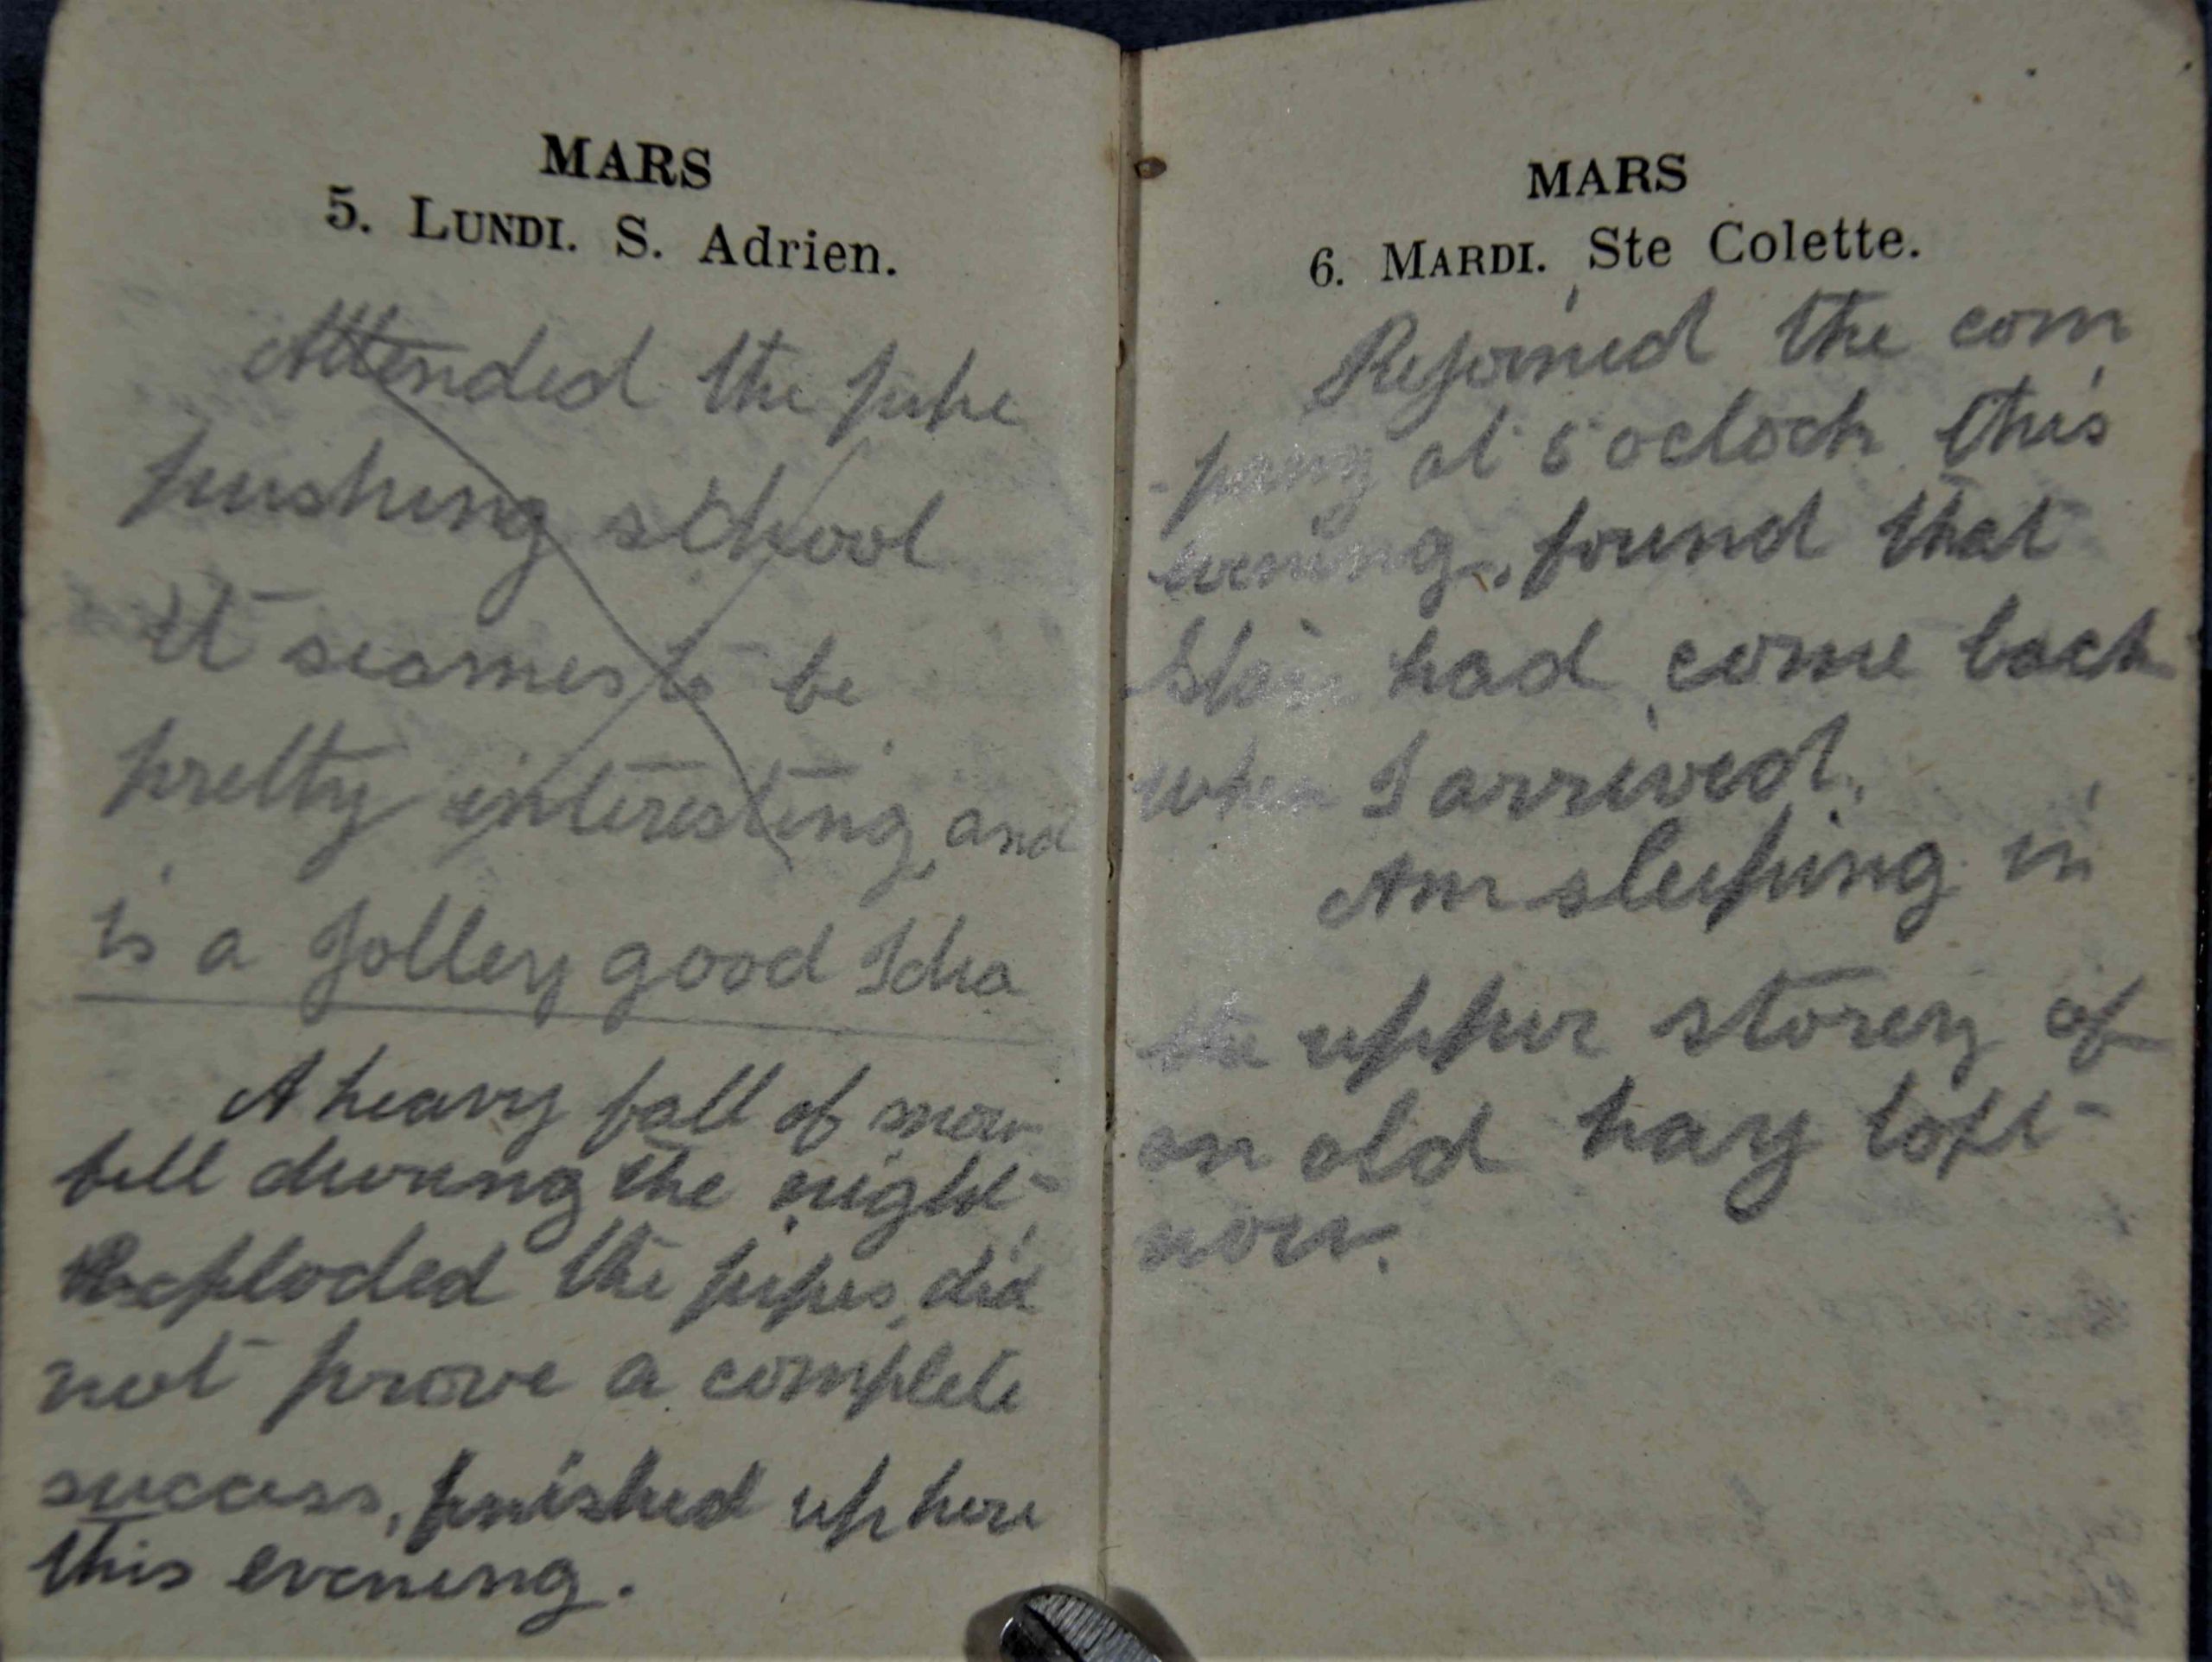 MARS
5. LUNDI. S. Adrien.
Attended the pipe
pushing school
It seames to be
pretty interesting, and
is a Jolley good Idea
A heavy fall of snow
fell during the night
Exploded the pipes, did
not prove a complete
success, finished up here
this evening.
MARS
6. MARDI. Ste Colette.
Rejoined the com
-pany at 5 oclock this
evening, found that
had come back
when I arrived,
Am sleeping in
the upper storey of
an old hay loft
now.